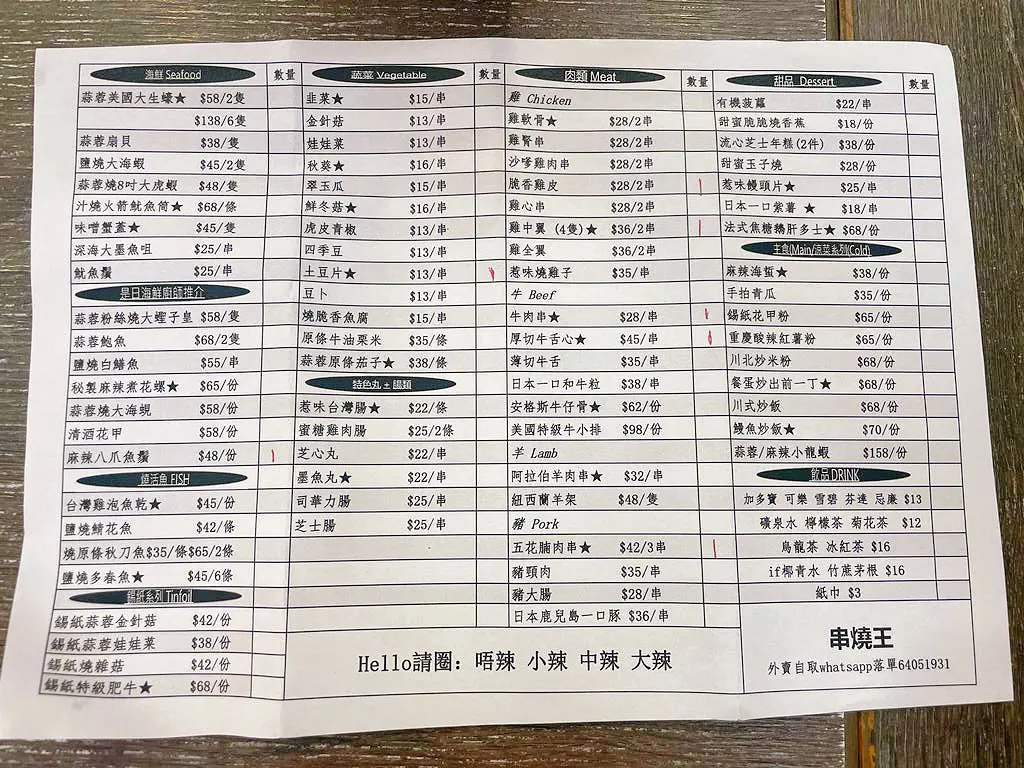 海鮮 Seafood 數量
蒜蓉美國大生蠔★ $58/2隻
$138/6隻
蒜蓉扇貝 $38/隻
鹽燒大海蝦 $45/2隻
蒜蓉燒8吋大虎蝦 $48/隻
汁燒火箭魷魚筒★ $68/條
味噌蟹蓋★ $45/隻
深海大墨魚咀 $25/串
魷魚鬚 $25/串
是日海鮮廚師推介
蒜蓉粉絲燒大蟶子皇 $58/隻
蒜蓉鮑魚 $68/2隻
鹽燒白鱔魚 $55/串
秘製麻辣煮花螺★ $65/份
蒜蓉燒大海蜆 $58/份
清酒花甲 $58/份
麻辣八爪魚鬚 $48/份
燒活魚 FISH
台灣雞泡魚乾★ $45/份
鹽燒鯖花魚 $42/條
燒原條秋刀魚$35/條$65/2條
鹽燒多春魚★ $45/6條
錫紙系列 Tinfoil
錫紙蒜蓉金針菇 $42/份
錫紙蒜蓉娃娃菜 $38/份
錫紙燒雜菇 $42/份
錫紙特級肥牛★ $68/份
蔬菜 Vegetable 數量
韭菜★ $15/串
金針菇 $13/串
娃娃菜 $13/串
秋葵★ $16/串
翠玉瓜 $15/串
鮮冬菇★ $16/串
虎皮青椒 $13/串
四季豆 $13/串
土豆片★ $13/串
豆卜 $13/串
燒脆香魚腐 $15/串
原條牛油粟米 $35/條
蒜蓉原條茄子★ $38/條
特色丸±腸類
惹味台灣腸★ $22/條
蜜糖雞肉腸 $25/2條
芝心丸 $22/串
墨魚丸★ $22/串
司華力腸 $25/串
芝士腸 $25/串
肉類 Meat 數量
雞 Chicken
雞軟骨★ $28/2串
雞腎串 $28/2串
沙嗲雞肉串 $28/2串
脆香雞皮 $28/2串
雞心串 $28/2串
雞中翼 (4隻)★ $36/2串
雞全翼 $36/2串
惹味燒雞子 $35/串
牛 Beef
牛肉串★ $28/串
厚切牛舌心★ $45/串
薄切牛舌 $35/串
日本一口和牛粒 $38/串
安格斯牛仔骨★ $62/份
美國特級牛小排 $98/份
羊 Lamb
阿拉伯羊肉串★ $32/串
紐西蘭羊架 $48/隻
豬 Pork
五花腩肉串★ $42/3串
豬頸肉 $35/串
豬大腸 $28/串
日本鹿兒島一口豚 $36/串
甜品 Dessert 數量
有機菠蘿 $22/串
甜蜜脆脆燒香蕉 $18/份
流心芝士年糕(2件) $38/份
甜蜜玉子燒 $28/份
惹味饅頭片★ $25/串
日本一口紫薯 ★ $18/串
法式焦糖鵝肝多士★ $68/份
主食(Main/涼菜系列(Cold)
麻辣海蜇★ $38/份
手拍青瓜 $35/份
錫紙花甲粉 $65/份
重慶酸辣紅薯粉 $65/份
川北炒米粉 $68/份
餐蛋炒出前一丁★ $68/份
川式炒飯 $68/份
鰻魚炒飯★ $70/份
蒜蓉/麻辣小龍蝦 $158/份
飲品 DRINK
加多寶 可樂 雪碧 芬達 忌廉 $13
礦泉水 檸檬茶 菊花茶 $12
烏龍茶 冰紅茶 $16
if椰青水 竹蔗茅根 $16
紙巾 $3
Hello請圈: 唔辣 小辣 中辣 大辣
串燒王
外賣自取whatsapp落單64051931